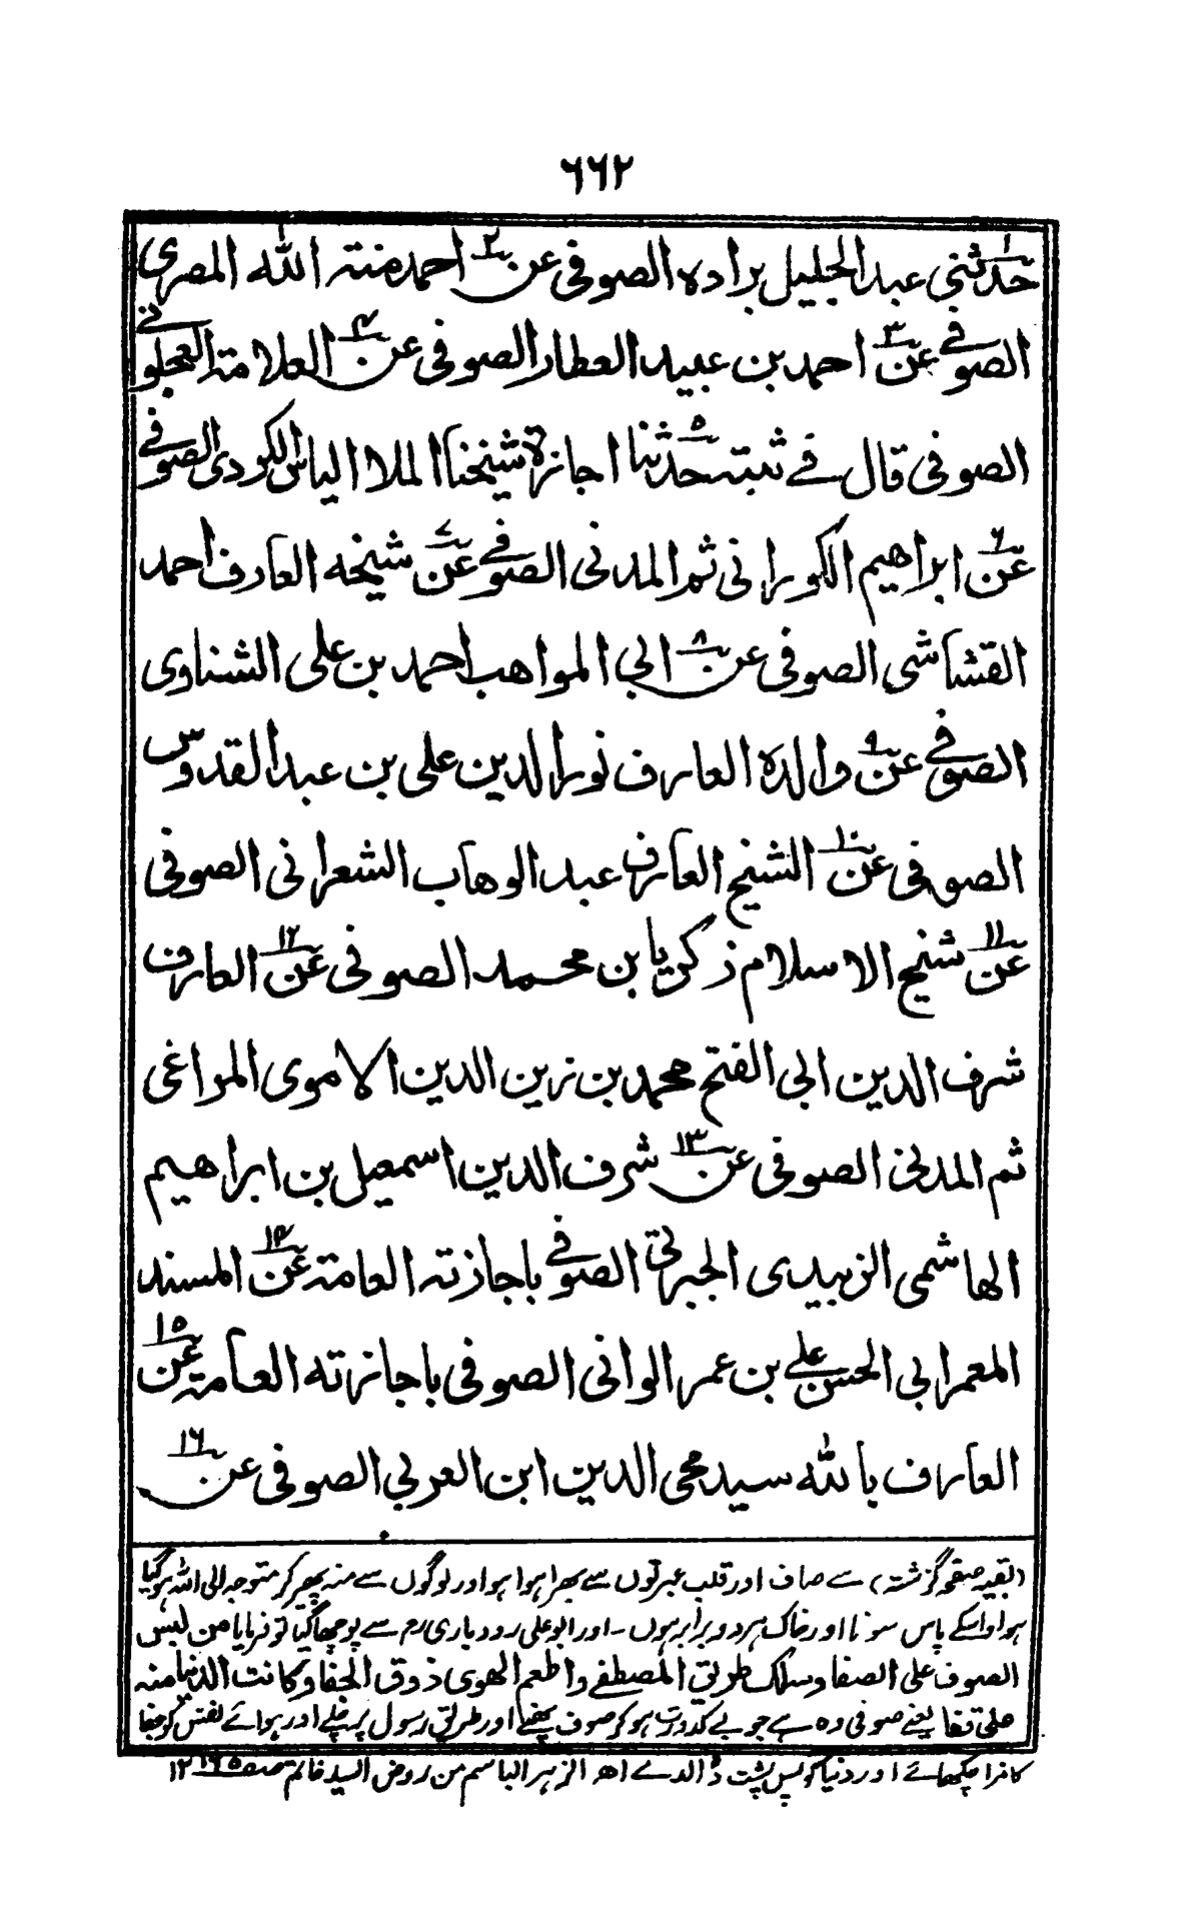 ٦٦٢
حدثني عبد الجليل براده الصوفى عن احمد منة الله المصرى
الصوفے عن احمد بن عبيد العطار الصوفى عن العلامة العجلونے
الصوفى قال فے ثبته حدثنا اجازة شيخنا الملا الياس الكردى الصوفے
عن ابراهيم الكورانى ثم المدنى الصوفے عن شيخه العارف احمد
القشاشى الصوفى عن ابى المواهب احمد بن على الشناوى
الصوفے عن والده العارف نور الدين على بن عبد القدوس
الصوفى عن الشيخ العارف عبد الوهاب الشعرانى الصوفى
عن شيخ الاسلام زكريا بن محمد الصوفى عن العارف
شرف الدين ابى الفتح محمد بن زين الدين الاموى المراغى
ثم المدنى الصوفى عن شرف الدين اسمعيل بن ابراهيم
الهاشمى الزبيدى الجبرتى الصوفے باجازته العامة عن المسند
المعمر ابى الحسن علے بن عمر الوانى الصوفى باجازته العامة عن
العارف بالله سيد محى الدين ابن العربى الصوفى عن
(بقیہ صفحہ گزشتہ) سے صاف اور قلب عبرتوں سے بھرا ہوا ہو اور لوگوں سے منہ پھیر کر متوجہ الی اللہ ہوگیا
ہو اور اسکے پاس سونا اور خاک ہر دو برابر ہوں۔ اور ابو علی رودباری رح سے پوچھا گیا تو فرمایا من لبس
الصوف على الصفا وسلك طريق المصطفے واطعم الهوى ذوق الجفا وكانت الدنيا منه
على قفا یعنے صوفی وہ ہے جو بے کدورت ہوکر صوف پہنے اور طریق رسول پر چلے اور ہوائے نفس کو جفا
کا مزا چکھائے اور دنیا کو پس پشت ڈالدے اھ الزهر الباسم من روض السيد قاسم صفحہ ١٦٥ ١٢